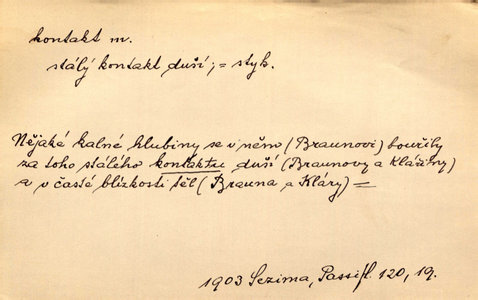 kontakt m.
stálý kontakt duší; = styk.
Nějaké kalné hlubiny se v něm (Braunovi) bouřily
za toho stálého kontaktu duší (Braunovy a Klářiny)
a v časté blízkosti těl (Brauna a Kláry) =
1903 Sezima, Passifl. 120, 19.